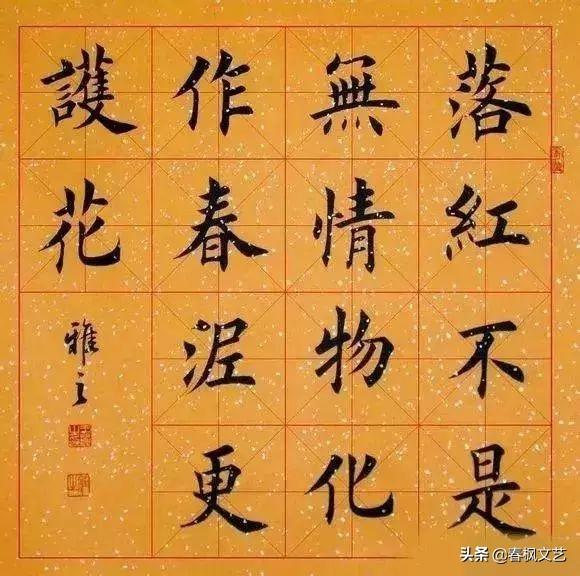 落紅不是
無情物化
作春泥更
護花
雅之
头条 @春枫文艺